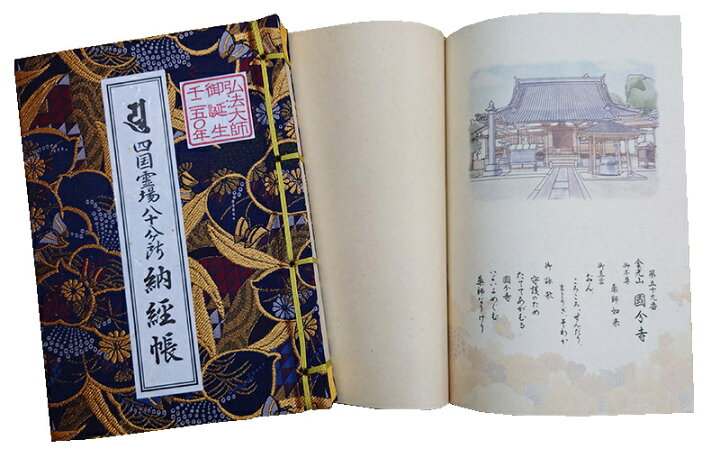 四国霊場八十八ヶ所 納経帳
弘法大師
御誕生
壬二五〇年
第五十九番
金光山 國分寺
御本尊
薬師如来
御真言
おん
ころころ せんだり
まとうぎ そわか
御詠歌
守護のため
たててあがむる
國分寺
いよいよめぐむ
薬師なりけり